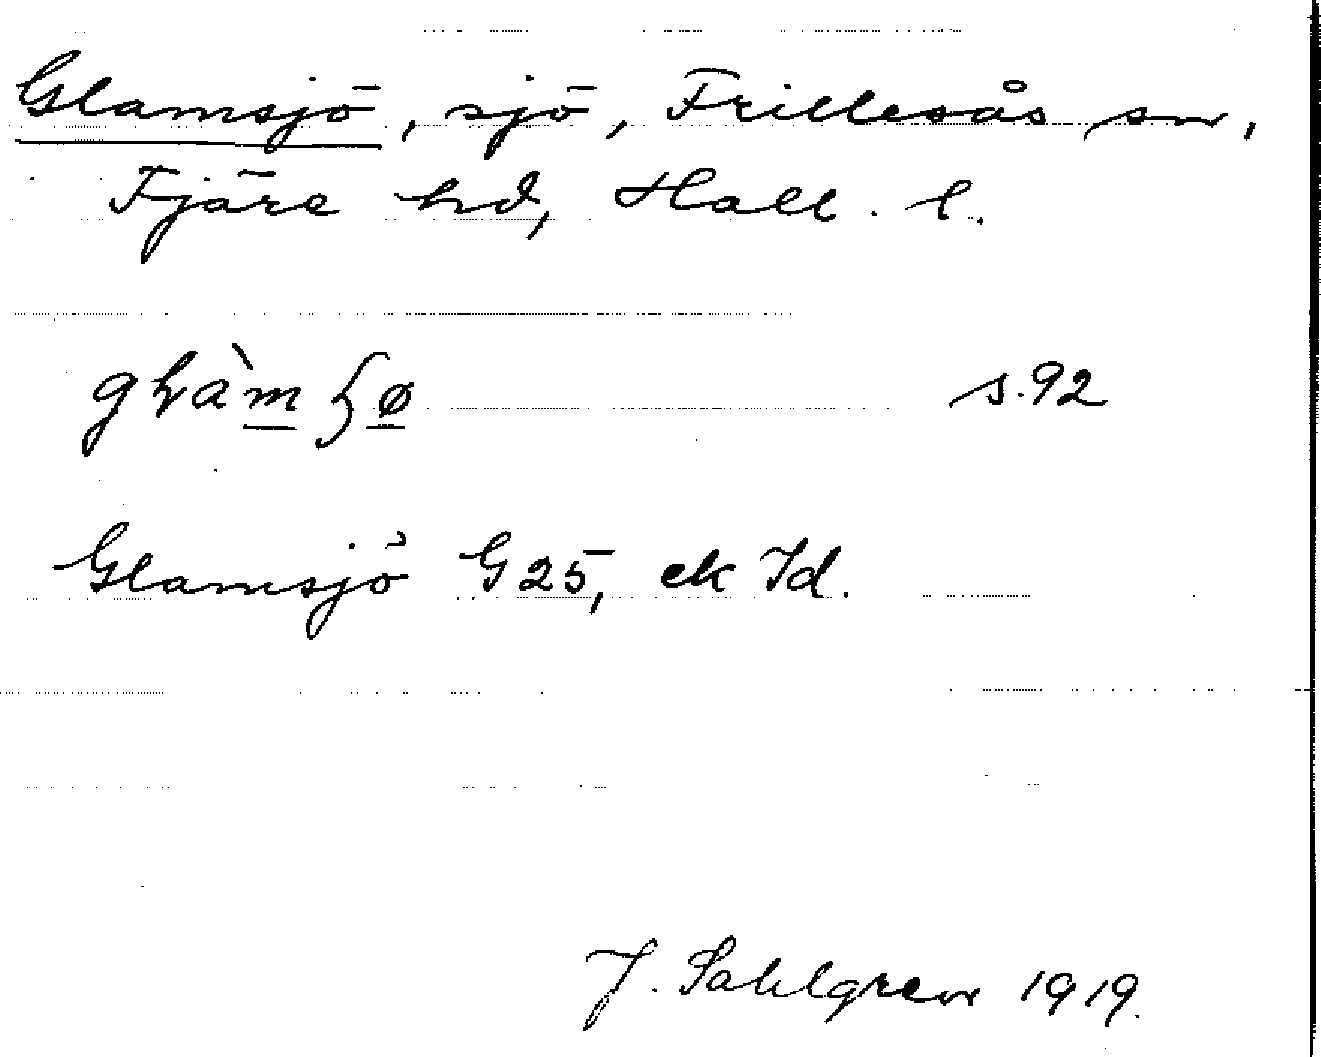 Glamsjö, sjö, Frillesås sn,
Fjäre hd, Hall. l.
s. 92
Glamsjö G 25, ek Id.
J. Sahlgren 1919.